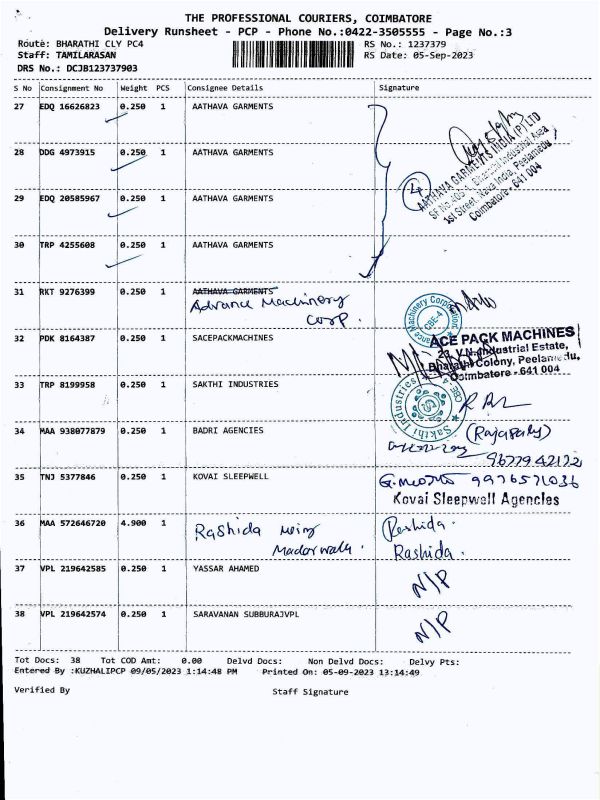 THE PROFESSIONAL COURIERS, COIMBATORE
Delivery Runsheet - PCP - Phone No.:0422-3505555 - Page No.:3
Route: BHARATHI CLY PC4 RS No.: 1237379
Staff: TAMILARASAN RS Date: 05-Sep-2023
DRS No.: DCJB123737903
S No Consignment No Weight PCS Consignee Details Signature
27 EDQ 16626823 0.250 1 AATHAVA GARMENTS
28 DDG 4973915 0.250 1 AATHAVA GARMENTS
29 EDQ 20585967 0.250 1 AATHAVA GARMENTS
30 TRP 4255608 0.250 1 AATHAVA GARMENTS
4
AATHAVA GARMENTS INDIA (P) LTD
1st Street, Nava India, Peelamedu
Coimbatore - 641 004
31 RKT 9276399 0.250 1 AATHAVA GARMENTS
Advance Machinery
Corp.
CBE-4
32 PDK 8164387 0.250 1 SACEPACKMACHINES
ACE PACK MACHINES
23, V.N. Industrial Estate,
Bharathi Colony, Peelamedu,
Coimbatore - 641 004
33 TRP 8199958 0.250 1 SAKTHI INDUSTRIES
Sakthi Industries
34 MAA 938077879 0.250 1 BADRI AGENCIES
9677942122
35 TNJ 5377846 0.250 1 KOVAI SLEEPWELL
9976571036
Kovai Sleepwell Agencies
36 MAA 572646720 4.900 1 Rashida
Rashida.
Rashida.
37 VPL 219642585 0.250 1 YASSAR AHAMED N/P
38 VPL 219642574 0.250 1 SARAVANAN SUBBURAJVPL N/P
Tot Docs: 38 Tot COD Amt: 0.00 Delvd Docs: Non Delvd Docs: Delvy Pts:
Entered By :KUZHALIPCP 09/05/2023 1:14:48 PM Printed On: 05-09-2023 13:14:49
Verified By Staff Signature